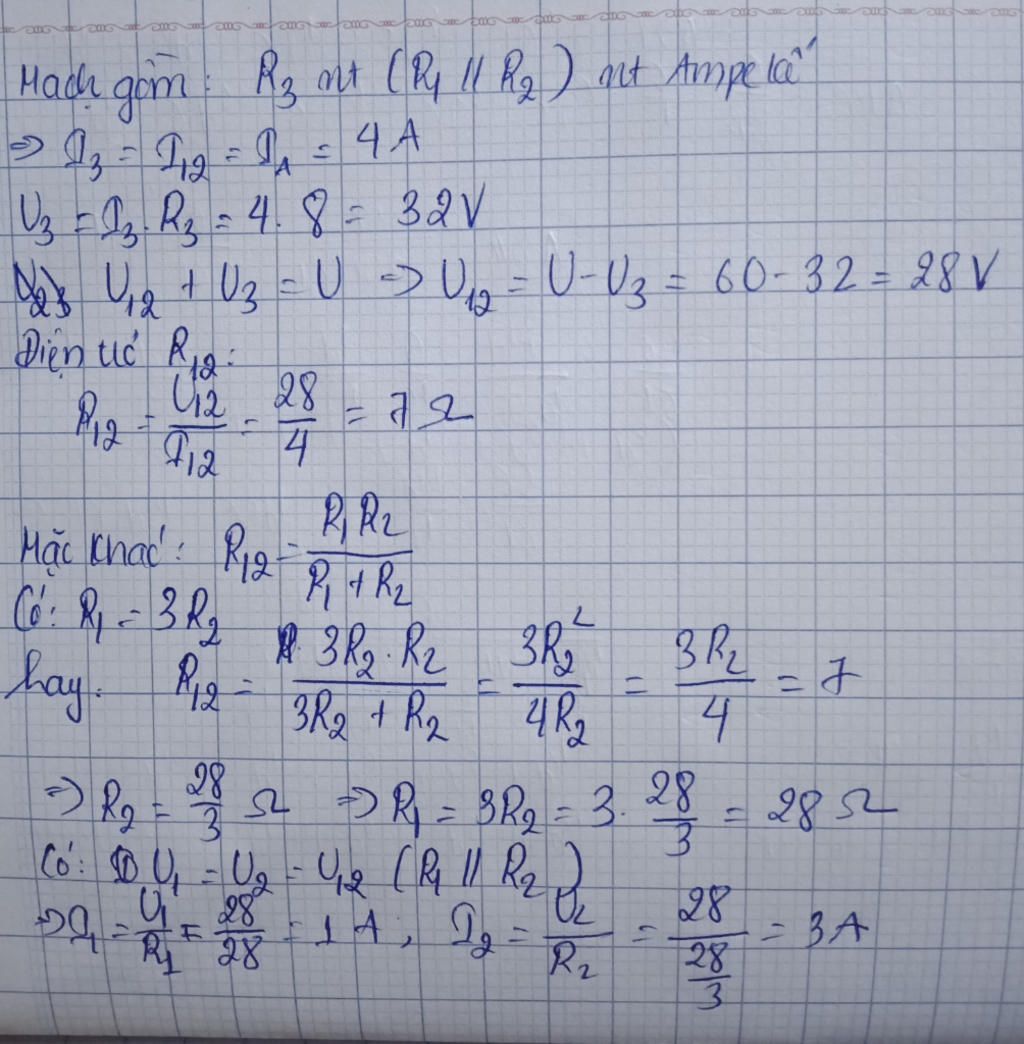 Mạch gồm: R₃ nt (R₁ // R₂) nt Ampe kế
⇒ I₃ = I₁₂ = I_A = 4 A
U₃ = I₃. R₃ = 4. 8 = 32V
U₁₂ + U₃ = U ⇒ U₁₂ = U - U₃ = 60 - 32 = 28 V
Điện trở R₁₂:
R₁₂ = U₁₂/I₁₂ = 28/4 = 7 Ω
Mặc khác: R₁₂ = R₁R₂/(R₁ + R₂)
Có: R₁ = 3R₂
hay: R₁₂ = (3R₂. R₂)/(3R₂ + R₂) = 3R₂²/4R₂ = 3R₂/4 = 7
⇒ R₂ = 28/3 Ω ⇒ R₁ = 3R₂ = 3. 28/3 = 28 Ω
Có: U₁ = U₂ = U₁₂ (R₁ // R₂)
⇒ I₁ = U₁/R₁ = 28/28 = 1 A, I₂ = U₂/R₂ = 28/(28/3) = 3A